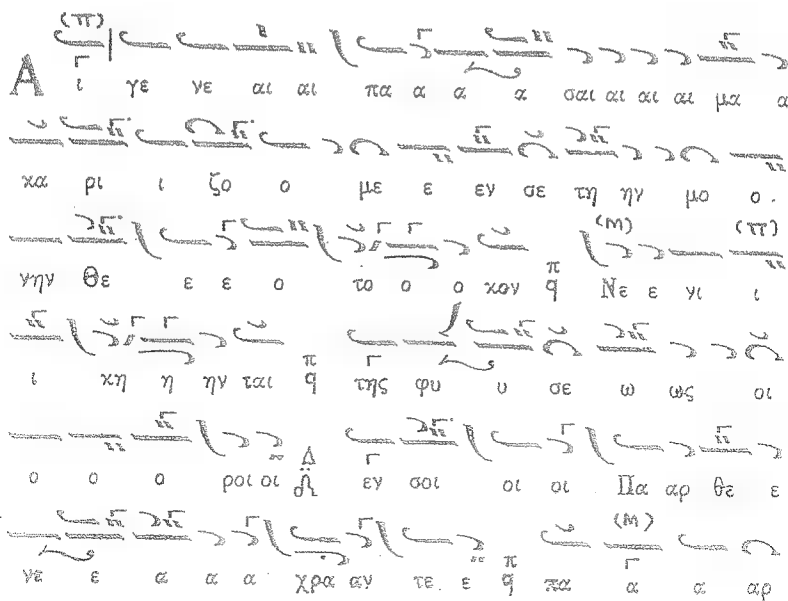 (π)
Α ι γε νε αι αι πα α α α σαι αι αι αι μα α
κα ρι ι ζο ο με ε εν σε τη ην μο ο .
(Μ) (π)
νην Θε ε ε ο το ο ο κον π q Νε ε νι ι
ι κη η ην ται π q της φυ υ σε ω ως οι
ο ο ο ροι οι Δ εν σοι οι οι Πα αρ θε ε
(Μ)
νε ε α α α χρα αν τε. ε π q πα α α αρ